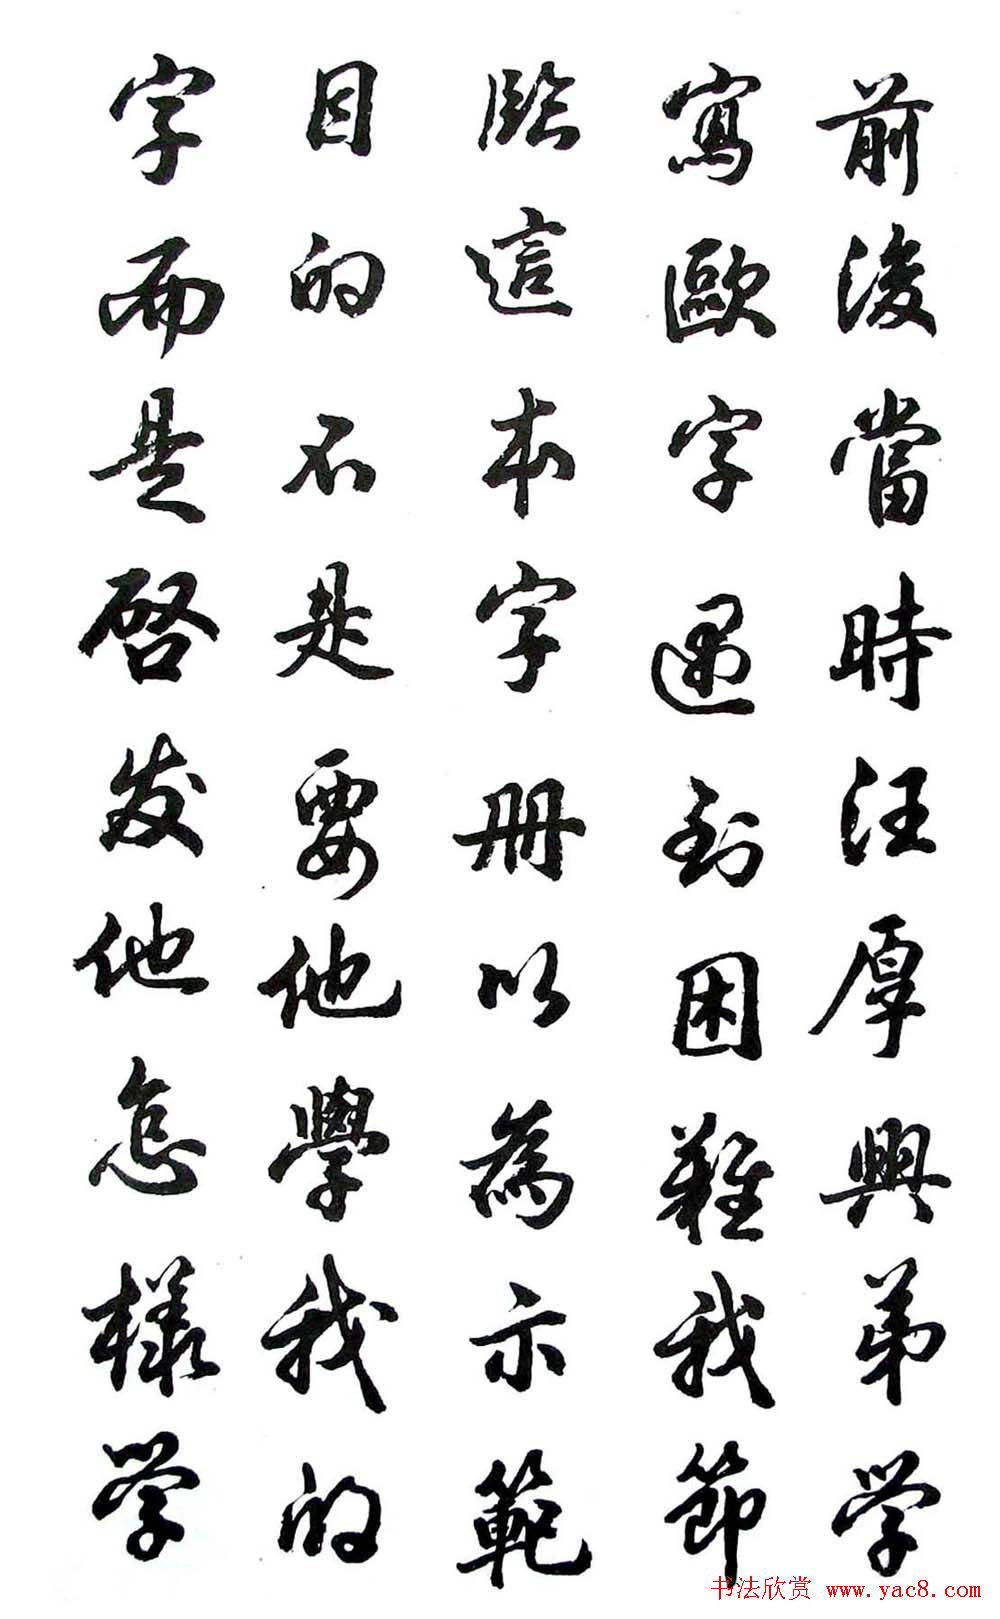 前後當時汪厚興弟学
寫歐字遇到困難我節
臨這本字册以為示範
目的不是要他學我的
字而是啓发他怎樣学
书法欣赏 www.yac8.com